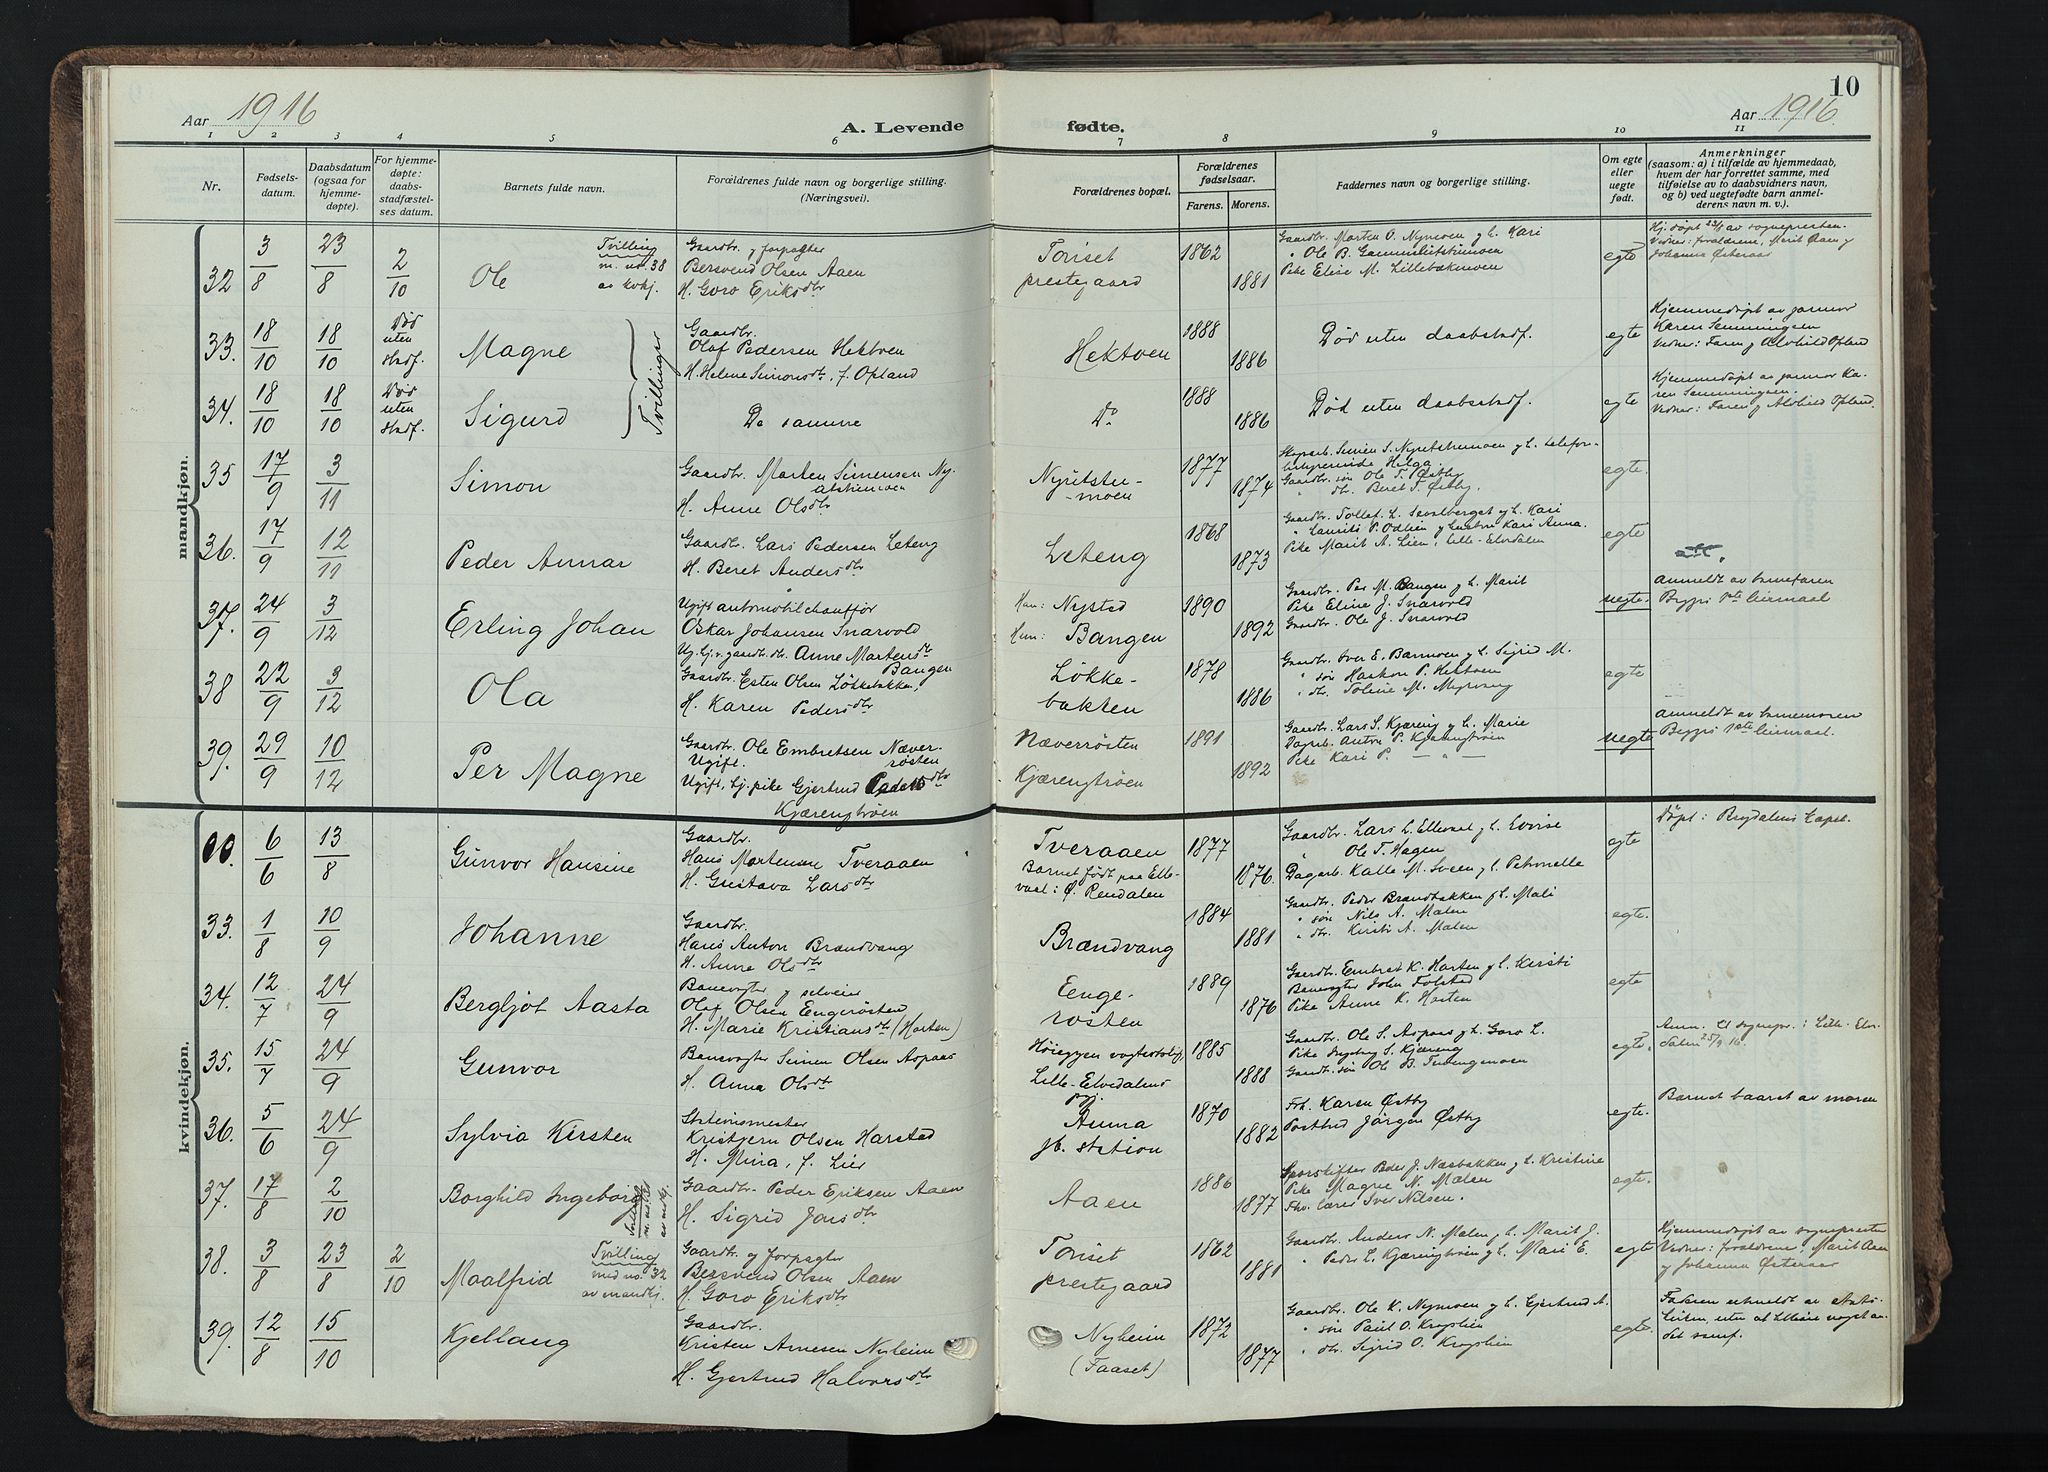 Aar 1916
A. Levende
fødte.
10
Aar 1916
1 2 3 4 5 6 7 8 9 10 11
Nr.
Fødsels-
datum.
Daabsdatum
(ogsaa for
hjemme-
døpte).
For hjemme-
døpte:
daabs-
stadfæstel-
ses datum.
Barnets fulde navn.
Forældrenes fulde navn og borgerlige stilling.
(Næringsvei).
Forældrenes bopæl.
Forældrenes
fødselsaar.
Farens. Morens.
Faddernes navn og borgerlige stilling.
Om egte
eller
uegte
født.
Anmerkninger
(saasom: a) i tilfælde av hjemmedaab,
hvem der har forrettet samme, med
tilføielse av to daabsvidners navn,
og b) ved uegtefødte barn anmel-
derens navn m. v.).
mandkjøn.
32 3/8 23/8 2/10 Ole
Tvilling
m. no. 38
av kvkj.
Gaardbr. y forpagter
Bersvend Olsen Aaen
H. Goro Eriksdtr
Tønset
prestegaard
1862
1881
Gaardbr. Morten O. Nymoen y h. Kari
" Ole B. Gammelststumoen
Pike Elise M. Lillebækmoen
egte
Hj. døpt 23/8 av sognepresten
Vidner: forældrene, Marit Aaen y
Johanna Østeraas
33. 18/10 18/10
Død
uten
stadf.
Magne
Tvillinger
Gaardbr.
Olaf Pedersen Hektoen
H. Helene Simonsdtr, f. Opland
Hektoen
1888
1886
Død uten daabstadf.
egte
Hjemmedøpt av jormor
Karen Semmingsen
Vidner: Faren y Alvhild Opland
34. 18/10 18/10
Død
uten
stadf.
Sigurd
De samme
Do
1888
1886
Død uten daabstadf.
egte
Hjemmedøpt av jormor Ka-
ren Semmingsen
Vidner: Faren y Alvhild Opland.
35 17/9 3/11 Simon
Gaardbr. Morten Simensen Ny-
H. Anne Olsdtr
-moen
1877
1874
Helga
Gaardbr. søn Ole T. Østby
" dtr. Beret T. Østby,
egte
36. 17/9 12/11 Peder Annar
Gaardbr. Lars Pedersen Leteng
H. Beret Andersdtr
Leteng
1868
1873
Gaardbr. Tollef L. y h. Kari
" Laurits P. Odlien y hustru Kari Anna.
Pike Marit A. Lien, Lille-Elvdalen
egte
37. 24/9 3/12 Erling Johan
Ugift automobilchauffør
Oskar Johansen Snarvold
Ug. hj.v. gaardbr. dtr. Anne Martensdtr
Bangen
Han: Nysted
Hun: Bangen
1890
1892
Gaardbr. Per M. Bangen y h. Marit
Pike Eline J. Snarvold
Gaardbr. Ole J. Snarvold
uegte.
Anmeldt av barnefaren
Begges 1ste leiermaal
38 22/9 3/12 Ola
Gaardbr. Esten Olsen Løkkebakken,
H. Karen Pedersdtr
Løkke-
bakken
1878
1886
Gaardbr. Iver E. Barmoen y h. Sigrid M.
" søn Haakon P. Hektoen
" dtr. Toline M. Myrvang
egte
39. 29/9 10/12 Per Magne
Gaardbr. Ole Embretsen Næver-
Ugift. røsten
Ugift, hj. pike Gjertrud Pedersdtr
Kjærengtrøen
Næverrøsten
Kjærengtrøen
1891
1892
Gaardbr. Lars S. Kjæreng y h. Marie
Dagarb. Anton P. Kjærengtrøen
Pike Kari P. — " —
uegte
Anmeldt av barnemoren
Begges 1ste leiermaal.
kvindekjøn.
00. 6/6 13/8 Gunvor Hansine
Gaardbr.
Hans Mortensen Tveraaen
H. Gustava Larsdtr
Tveraaen
Barnet født paa Elle-
vaal i Ø. Rendalen
1877
1876.
Gaardbr. Lars L. Ellevaal y h. Lovise
" Ole T. Hagen
Dagarb. Kalle M. Sveen y h. Petronelle
egte
Døpt i Brydalens kapel.
33. 1/8 10/9 Johanne
Gaardbr.
Hans Anton Brændvang
H. Anne Olsdtr
Brændvang
1884
1881
Gaardbr. Peder Brandbakken y h. Mali
" søn Nils A. Malen
" dtr. Kirsti A. Malen
egte.
34. 12/7 24/9 Bergljot Aasta
Banevogter y selveier
Olaf Olsen Engerøsten
H. Marie Kristiansdtr (Horten)
Eenge-
røsten
1889
1876
Gaardbr. Embret K. Horten y h. Kirsti
Banevogter John Folstad
Pike Anne K. Horten
egte
35. 15/7 24/9 Gunvor
Banevogter Simen Olsen Aspaas
H. Anna Olsdtr
Høieggen vogterbolig,
Lille-Elvedalens
pgj.
1885
1888
Gaardbr. Ole S. Aspaas y h. Goro L.
Pike Ingeborg S. Kjæreng
Gaardbr. søn Ole B. Tvengenmoen
egte.
Anm. til sognepr. i Lille-Elv-
dalen 25/9 16.
36. 5/6 24/9 Sylvia Kirsten
Stationsmester
Kristjern Olsen Harstad
H. Mina, f. Lier
Auma
jb. station
1870
1882
Frk. Karen Østby
Postbud Jørgen Østby
egte.
Barnet baaret av moren
37. 17/8 2/10 Borghild Ingeborg
Gaardbr. Peder Eriksen Aaen
H. Sigrid Jonsdtr
Aaen
1886
1877
Peder J. Næsbakken y h. Kristine
Pike Magne N. Malen
Fhv. lærer Iver Nilsen.
egte.
38. 3/8 23/8 2/10 Maalfrid
Tvilling
med no. 32
av mandkj.
Gaardbr. y forpagter
Bersvend Olsen Aaen
H. Goro Eriksdtr
Tønset
prestegaard
1862
1881
Gaardbr. Anders N. Malen y h. Marit J.
" Peder L. Kjærengtrøen y h. Mari E.
egte
Hjemmedøpt av sognepresten
Vidner: forældrene, Marit Aaen
y Johanna Østeraas
39. 12/8 15/10 Kjellaug
Gaardbr.
Kristen Arnesen Nyheim
H. Gjertrud Halvorsdtr
Nyheim
(Faaset)
1872
1877
Gaardbr. Ole K. Nymoen y h. Gjertrud A.
" søn Paul O. Krogslien
" dtr. Sigrid O. Krogslien
egte.
Faderen utmeldt av Stats-
kirken, uten at tilhøre noget an-
det samf.